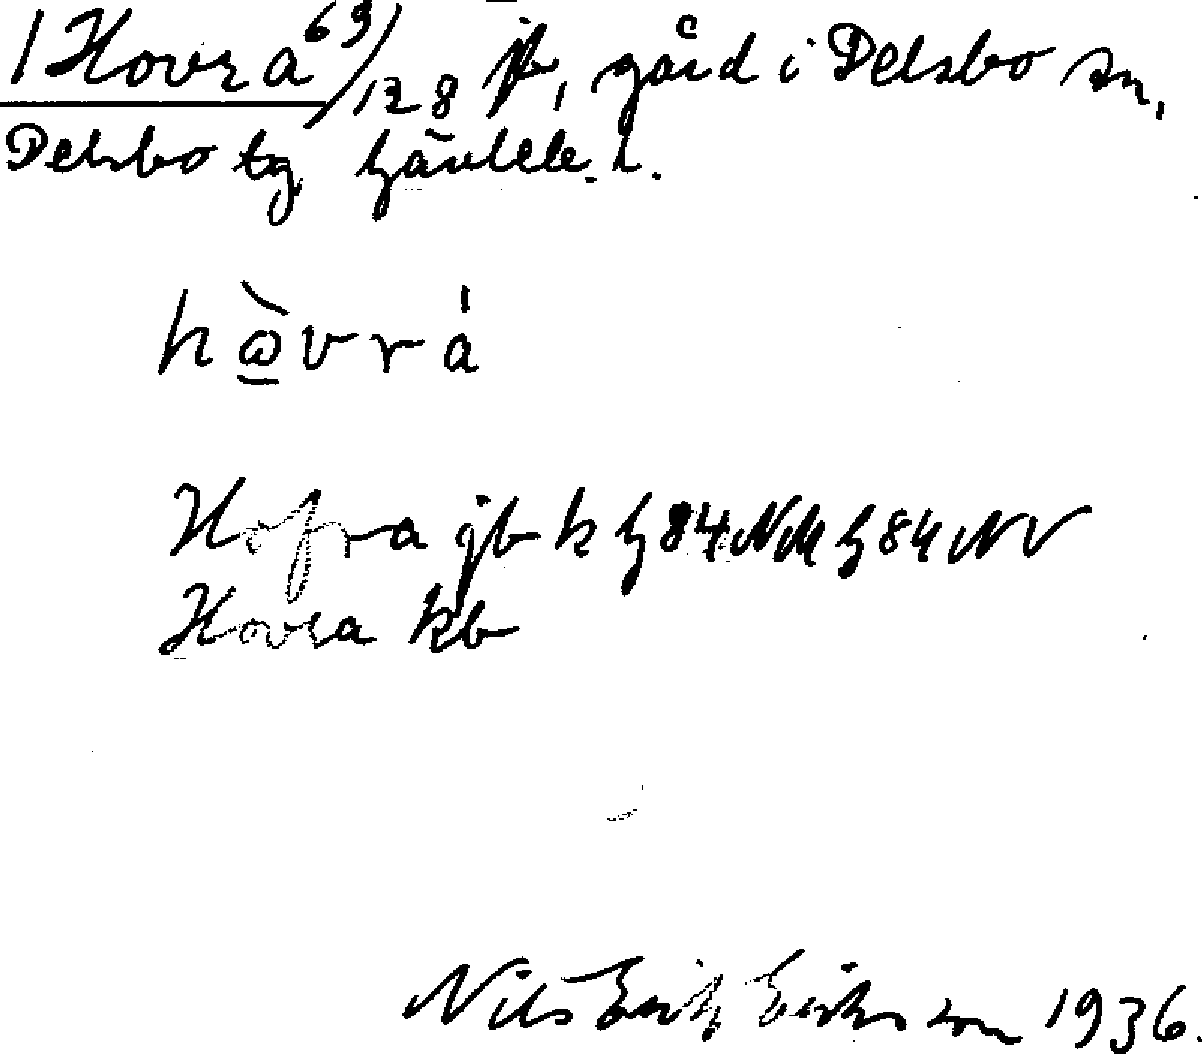 1 Hovra 63/128 jb, gård i Delsbo sn,
Delsbo tg Gävleb. l.
hὼ̲vrá
Hofra jb k G84NM G84NV
Hovra kb
Nils Erik Eriksson 1936.